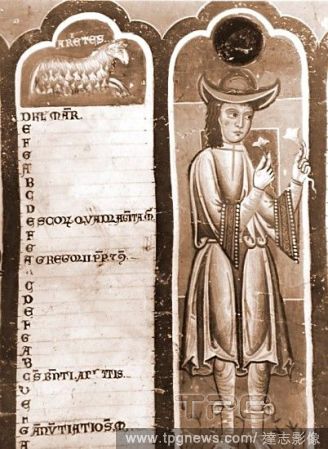 ARETES
D KL MAR.
E
F
G
A
B
C
D
E SCOR. QVADRAGITA M
F
G
A GREGORII PP
C
D
E
F
G
A
B
C S BNTI AP TIS
E
G ANVTIATIO S M
A
TPG
www.tpgnews.com/ 達志影像